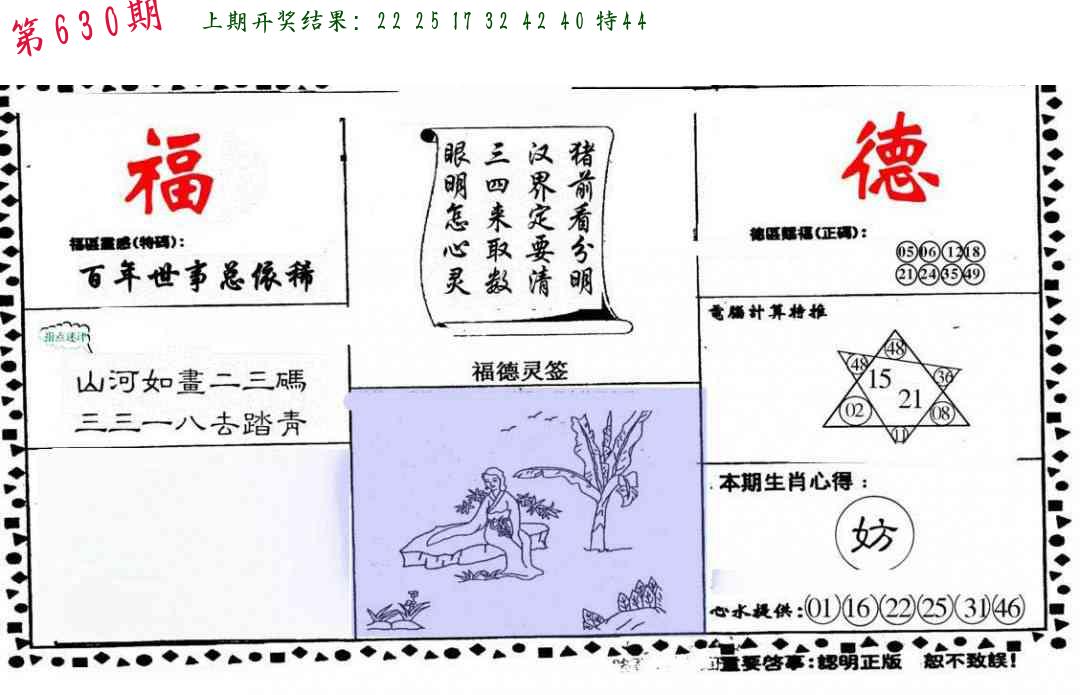 第630期
上期开奖结果：22 25 17 32 42 40 特44
福
福區靈感(特碼)：
百年世事总依稀
指点迷津
山河如畫二三碼
三三一八去踏青
猪前看分明
汉界定要清
三四来取数
眼明怎心灵
福德灵签
德
德區賜福(正碼)：
05 06 12 18
21 24 35 49
電腦計算特推
48
48 36
15
21
02 08
11
本期生肖心得：
妨
心水提供：01 16 22 25 31 46
重要啓事：認明正版 恕不致誤！